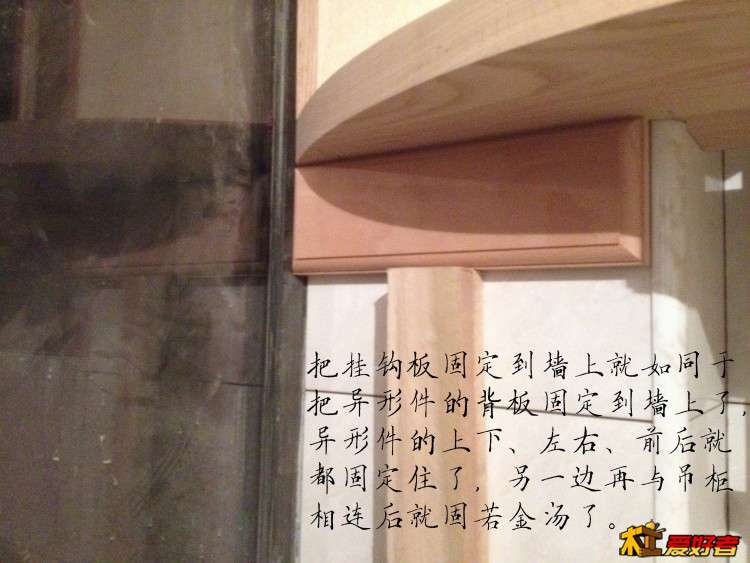 把挂钩板固定到墙上就如同于
把异形件的背板固定到墙上了,
异形件的上下、左右、前后就
都固定住了, 另一边再与吊柜
相连后就固若金汤了。
木工爱好者